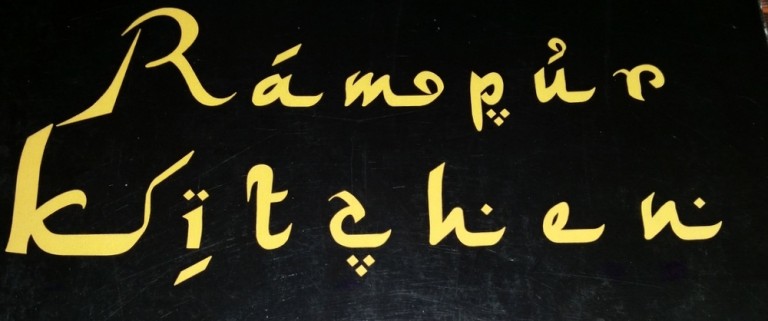 Rampur
Kitchen